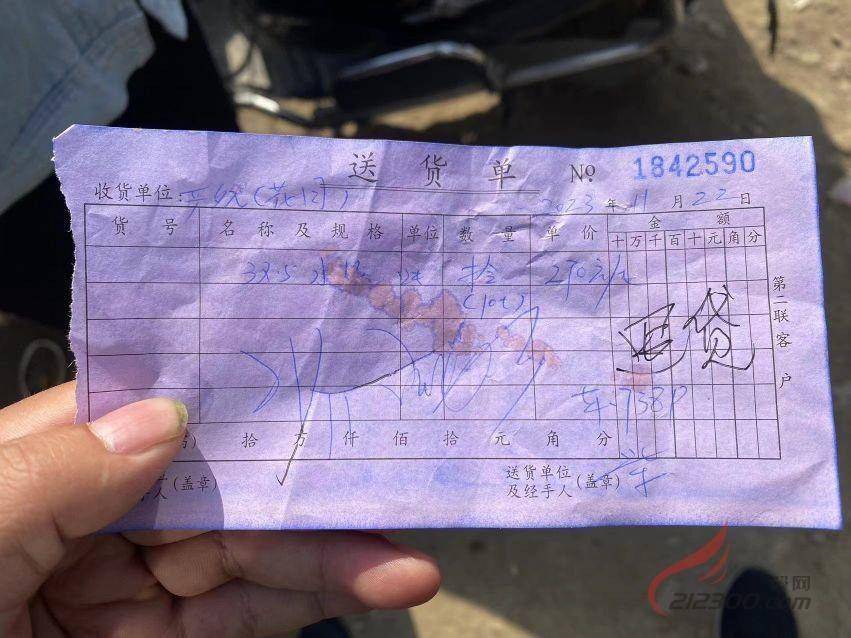 送货单 No 1842590
收货单位: 2023年11月22日
货号 名称及规格 单位 数量 单价 金额
十万千百十元角分
32.5 水泥 吨 拾 270元/
(10t)
退货
第二联客户
车:738P
拾万仟佰拾元角分
(盖章)
送货单位
及经手人(盖章)
212300.com